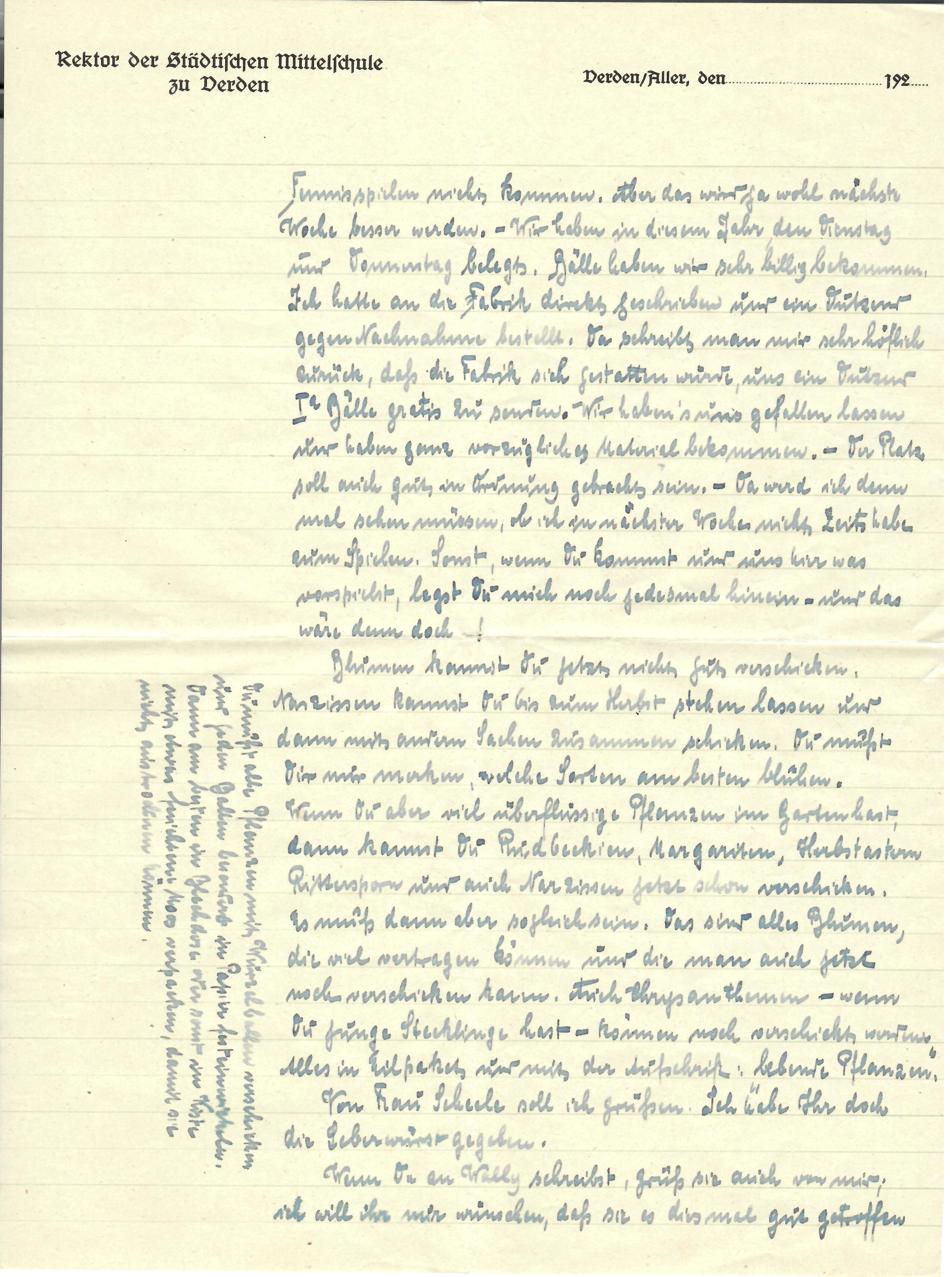 Rektor der Städtischen Mittelschule
zu Verden
Verden/Aller, den 192
Tennisspielen nichts kommen. Aber das wird ja wohl nächste
Woche besser werden. – Wir haben in diesem Jahr den Dienstag
und Donnerstag belegt. Bälle haben wir sehr billig bekommen.
Ich hatte an die Fabrik direkt geschrieben und ein Dutzend
gegen Nachnahme bestellt. Da schreibt man mir sehr höflich
zurück, daß die Fabrik sich gestatten würde, uns ein Dutzend
Iª Bälle gratis zu senden. – Wir haben's uns gefallen lassen
und haben ganz vorzügliches Material bekommen. – Der Platz
soll auch gut in Ordnung gebracht sein. – Da werd ich denn
mal sehen müssen, ob ich in nächster Woche nicht Zeit habe
zum Spielen. Sonst, wenn Du kommst und uns hier was
vorspielst, legst Du mich noch jedesmal hinein – und das
wäre denn doch – !
Blumen kannst Du jetzt nicht gut verschicken.
Narzissen kannst Du bis zum Herbst stehen lassen und
dann mit andern Sachen zusammen schicken. Du mußt
Dir nur merken, welche Sorten am besten blühen.
Wenn Du aber viel überflüssige Pflanzen im Garten hast,
dann kannst Du Rudbeckien, Margariten, Herbstastern
Rittersporn und auch Narzissen jetzt schon verschicken.
Es muß dann aber sogleich sein. Das sind alles Blumen,
die viel vertragen können und die man auch jetzt
noch verschicken kann. Auch Chrysanthemen – wenn
Du junge Stecklinge hast – können noch verschickt werden.
Alles in Eilpaket und mit der Aufschrift: „Lebende Pflanzen."
Von Frau Scheele soll ich grüßen. Ich habe Ihr doch
die Leberwurst gegeben.
Wenn Du an Wally schreibst, grüß sie auch von mir;
ich will ihr nur wünschen, daß sie es diesmal gut getroffen
Du mußt alle Pflanzen mit Wurzelballen verschicken
und jeden Ballen besonders in Papier fest einwickeln.
Dann am besten in oder sonst in Kiste
mit etwas feuchtem Moos verpacken, damit sie
nicht austrocknen können.